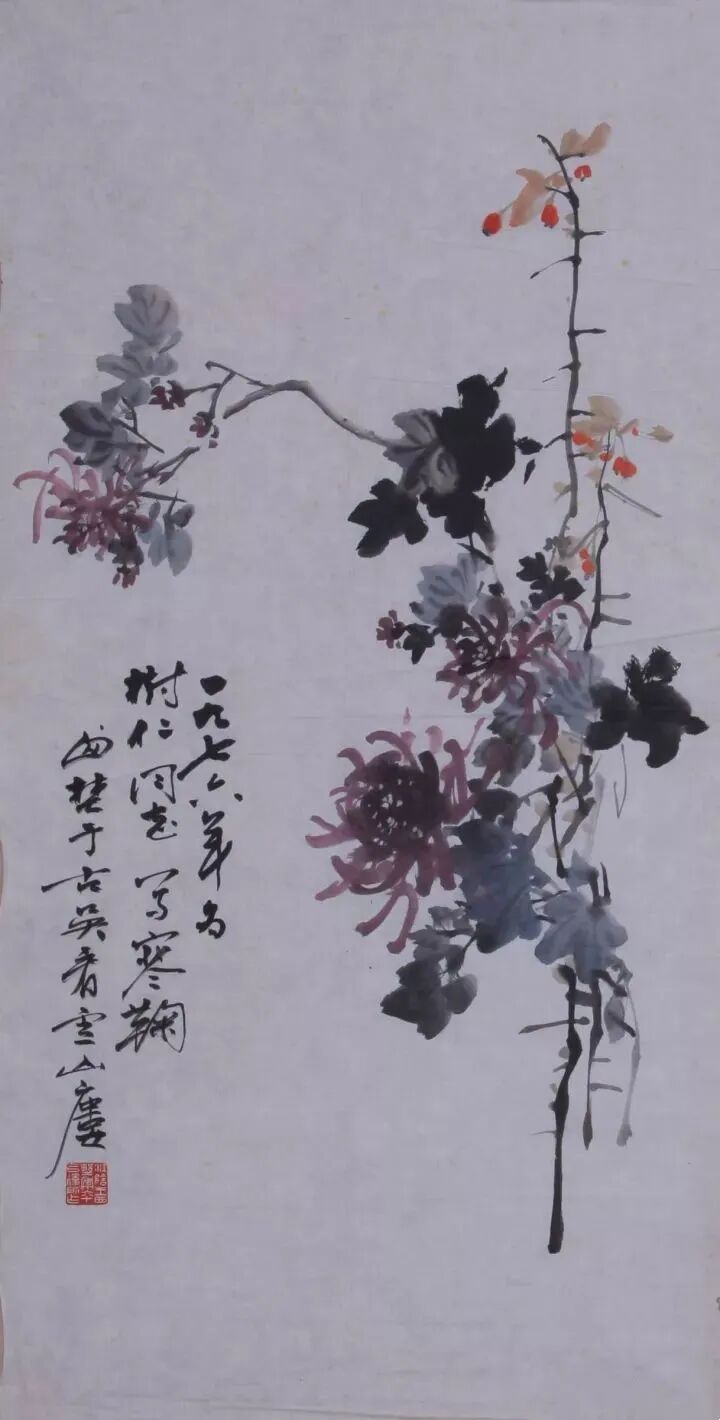 一九七六年为
樹仁同志写寒鞠
西埜于古吴看雲山廔